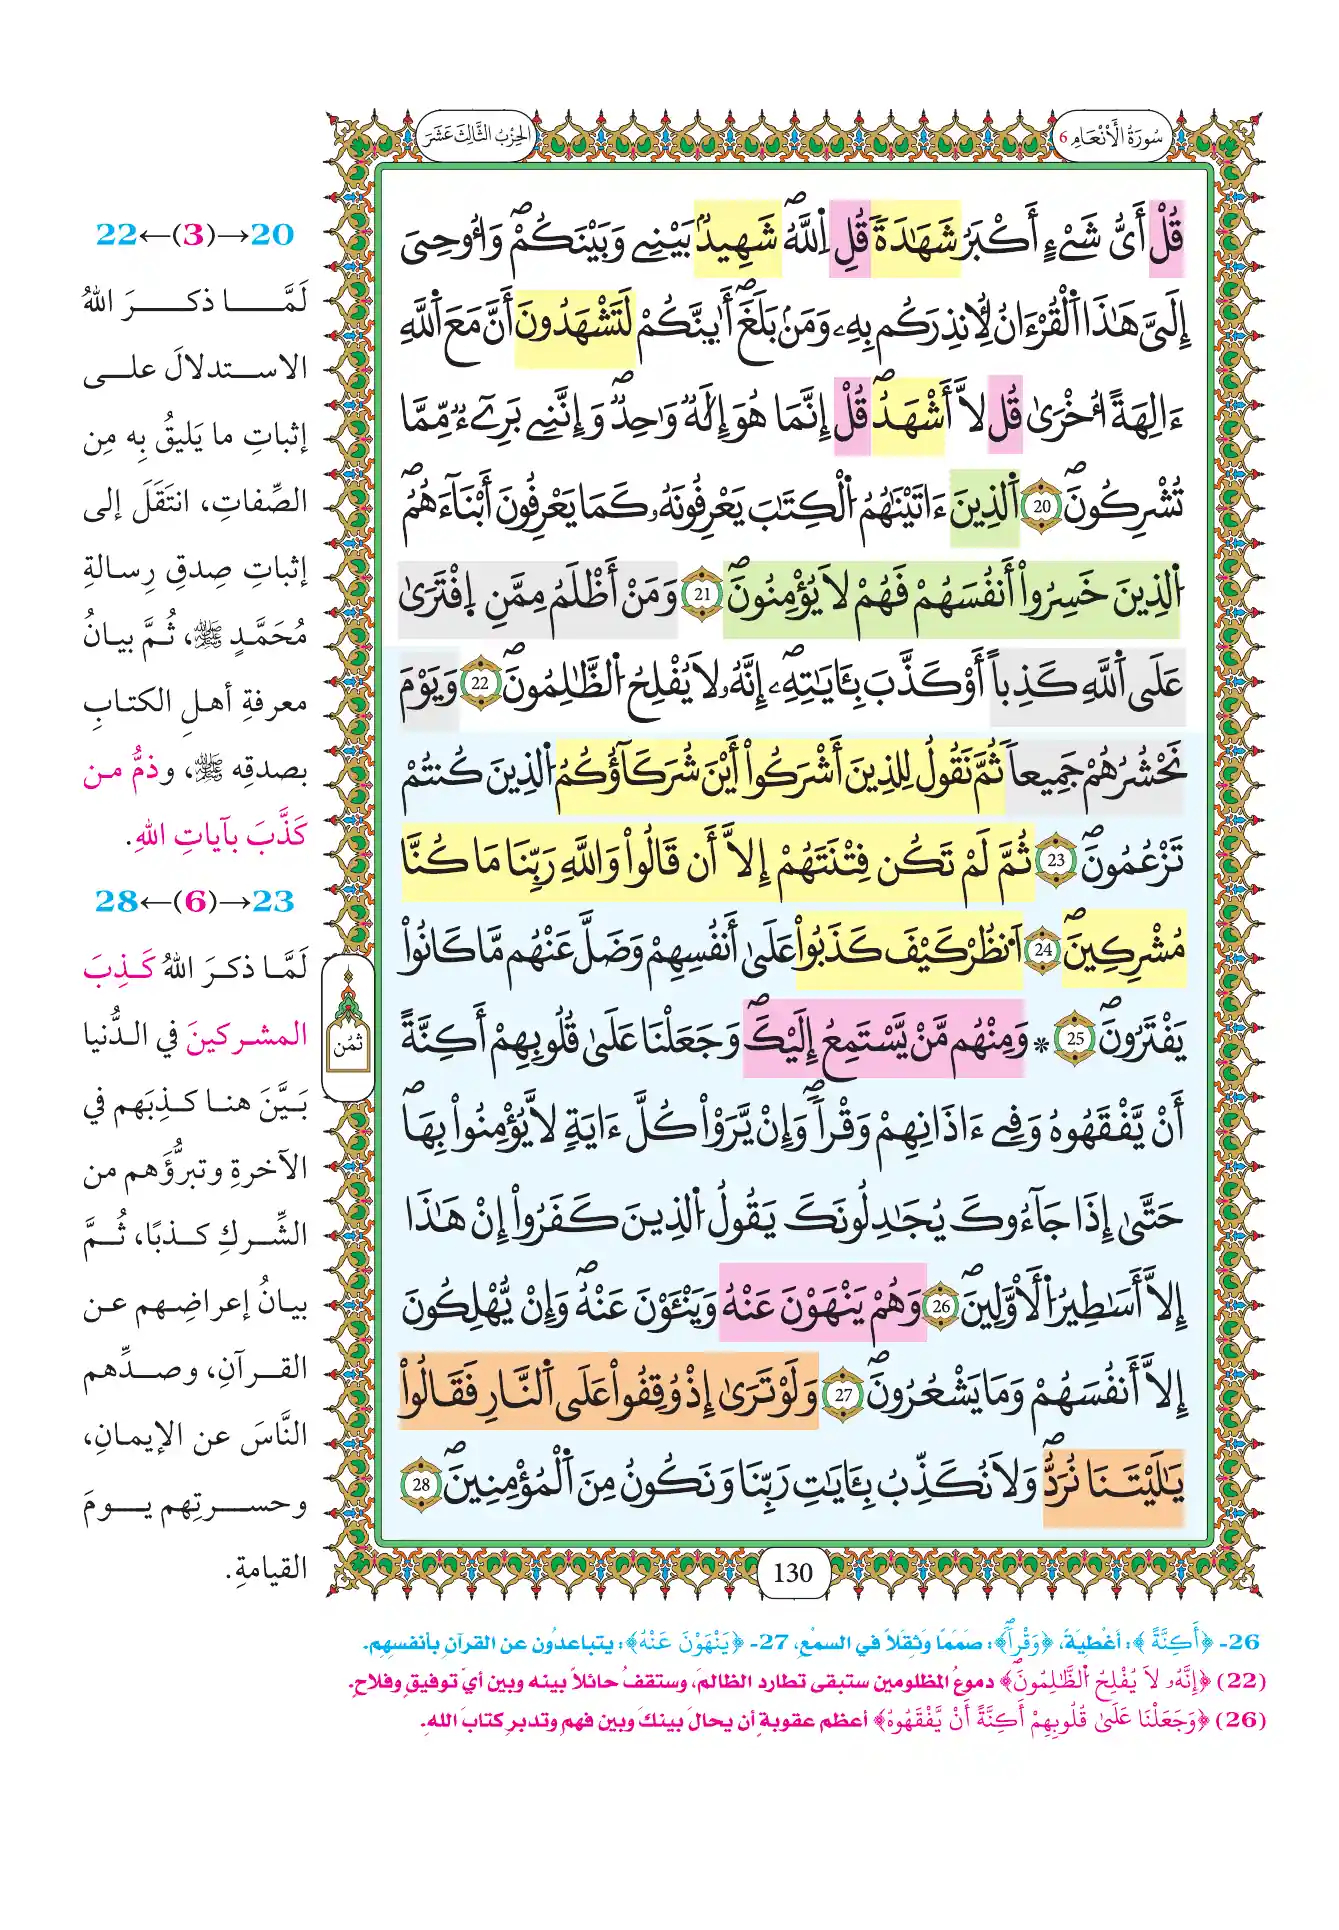 سُورَةُ الْأَنْعَامِ 6
الحِزْبُ الثَّالِثَ عَشَرَ
قُلْ أَىُّ شَےْءٍ أَكْبَرُ شَهَٰدَةًۖ قُلِ اِ۬للَّهُۖ شَهِيدُۢ بَيْنِے وَبَيْنَكُمْۖ وَأُوحِىَ
إِلَىَّ هَٰذَا اَ۬لْقُرْءَانُ لِأُنذِرَكُم بِهِۦ وَمَنۢ بَلَغَۖ أَئِنَّكُمْ لَتَشْهَدُونَ أَنَّ مَعَ اَ۬للَّهِ
ءَالِهَةً أُخْرَىٰۖ قُل لَّآ أَشْهَدُۖ قُلْ إِنَّمَا هُوَ إِلَٰهٞ وَٰحِدٞۖ وَإِنَّنِے بَرِےٓءٞ مِّمَّا
تُشْرِكُونَۖ 20 اَ۬لذِينَ ءَاتَيْنَٰهُمُ اُ۬لْكِتَٰبَ يَعْرِفُونَهُۥ كَمَا يَعْرِفُونَ أَبْنَآءَهُمُۖ
اُ۬لذِينَ خَسِرُوٓاْ أَنفُسَهُمْ فَهُمْ لَا يُؤْمِنُونَۖ 21 وَمَنْ أَظْلَمُ مِمَّنِ اِ۪فْتَرَىٰ
عَلَى اَ۬للَّهِ كَذِباً أَوْ كَذَّبَ بِـَٔايَٰتِهِۦٓۖ إِنَّهُۥ لَا يُفْلِحُ اُ۬لظَّٰلِمُونَۖ 22 وَيَوْمَ
نَحْشُرُهُمْ جَمِيعاً ثُمَّ نَقُولُ لِلذِينَ أَشْرَكُوٓاْ أَيْنَ شُرَكَآؤُكُمُ اُ۬لذِينَ كُنتُمْ
تَزْعُمُونَۖ 23 ثُمَّ لَمْ تَكُن فِتْنَتَهُمْ إِلَّآ أَن قَالُواْ وَاللَّهِ رَبِّنَا مَا كُنَّا
مُشْرِكِينَۖ 24 اَ۟نظُرْ كَيْفَ كَذَبُواْ عَلَىٰٓ أَنفُسِهِمْ وَضَلَّ عَنْهُم مَّا كَانُواْ
يَفْتَرُونَۖ 25 * وَمِنْهُم مَّنْ يَّسْتَمِعُ إِلَيْكَۖ وَجَعَلْنَا عَلَىٰ قُلُوبِهِمُۥٓ أَكِنَّةً
أَنْ يَّفْقَهُوهُ وَفِےٓ ءَاذَانِهِمْ وَقْراٗۖ وَإِنْ يَّرَوْاْ كُلَّ ءَايَةٖ لَّا يُؤْمِنُواْ بِهَاۖ
حَتَّىٰٓ إِذَا جَآءُوكَ يُجَٰدِلُونَكَ يَقُولُ اُ۬لذِينَ كَفَرُوٓاْ إِنْ هَٰذَآ
إِلَّآ أَسَٰطِيرُ اُ۬لَاوَّلِينَۖ 26 وَهُمْ يَنْهَوْنَ عَنْهُ وَيَنْـَٔوْنَ عَنْهُۖ وَإِنْ يُّهْلِكُونَ
إِلَّآ أَنفُسَهُمْ وَمَا يَشْعُرُونَۖ 27 وَلَوْ تَرَىٰٓ إِذْ وُقِفُواْ عَلَى اَ۬لنَّارِ فَقَالُواْ
يَٰلَيْتَنَا نُرَدُّۖ وَلَا نُكَذِّبُ بِـَٔايَٰتِ رَبِّنَا وَنَكُونُ مِنَ اَ۬لْمُؤْمِنِينَۖ 28
ثُمُن
130
20→(3)←22
لَمَّا ذكرَ اللهُ
الاستدلالَ على
إثباتِ ما يَليقُ بِه مِن
الصِّفاتِ، انتَقَلَ إلى
إثباتِ صِدقِ رِسالةِ
مُحَمَّدٍ ﷺ، ثُمَّ بيانُ
معرفةِ أهلِ الكتابِ
بصدقِه ﷺ، وذمُّ من
كَذَّبَ بآياتِ اللهِ.
23→(6)←28
لَمَّا ذكرَ اللهُ كَذِبَ
المشركينَ في الدُّنيا
بَيَّنَ هنا كذِبَهم في
الآخرةِ وتبرُّؤَهم من
الشِّركِ كذبًا، ثُمَّ
بيانُ إعراضِهم عن
القرآنِ، وصدِّهم
النَّاسَ عن الإيمانِ،
وحسرتِهم يومَ
القيامةِ.
26- ﴿أَكِنَّةً﴾: أغْطِيَةً، ﴿وَقْراٗۖ﴾: صَمَمًا وَثِقَلاً في السمْعِ، 27- ﴿يَنْهَوْنَ عَنْهُ﴾: يتباعدُون عن القرآنِ بأنفسهِم.
(22) ﴿إِنَّهُۥ لَا يُفْلِحُ اُ۬لظَّٰلِمُونَۖ﴾ دموعُ المظلومين ستبقى تطارد الظالمَ، وستقفُ حائلاً بينه وبين أيّ توفيقٍ وفلاحٍ.
(26) ﴿وَجَعَلْنَا عَلَىٰ قُلُوبِهِمْ أَكِنَّةً أَنْ يَّفْقَهُوهُ﴾ أعظم عقوبةٍ أن يحالَ بينكَ وبين فهمِ وتدبرِ كتابَ اللهِ.